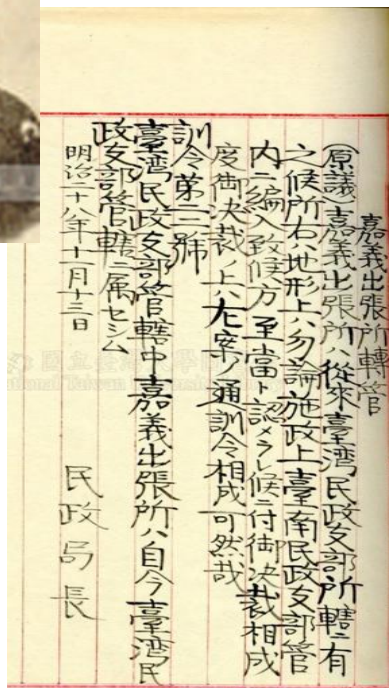 嘉義出張所轉管
(原議)嘉義出張所ハ從來臺湾民政支部所轄ニ有
之候所右ハ地形上ハ勿論施政上臺南民政支部管
内ニ編入致候方至當ト認メラレ候ニ付御决裁相成
度御决裁ノ上ハ左案ノ通訓令相成可然哉
訓令第三號
臺湾民政支部管轄中嘉義出張所ハ自今臺湾民
政支部管轄ニ属セシム
明治二十八年十一月十三日
民政局長